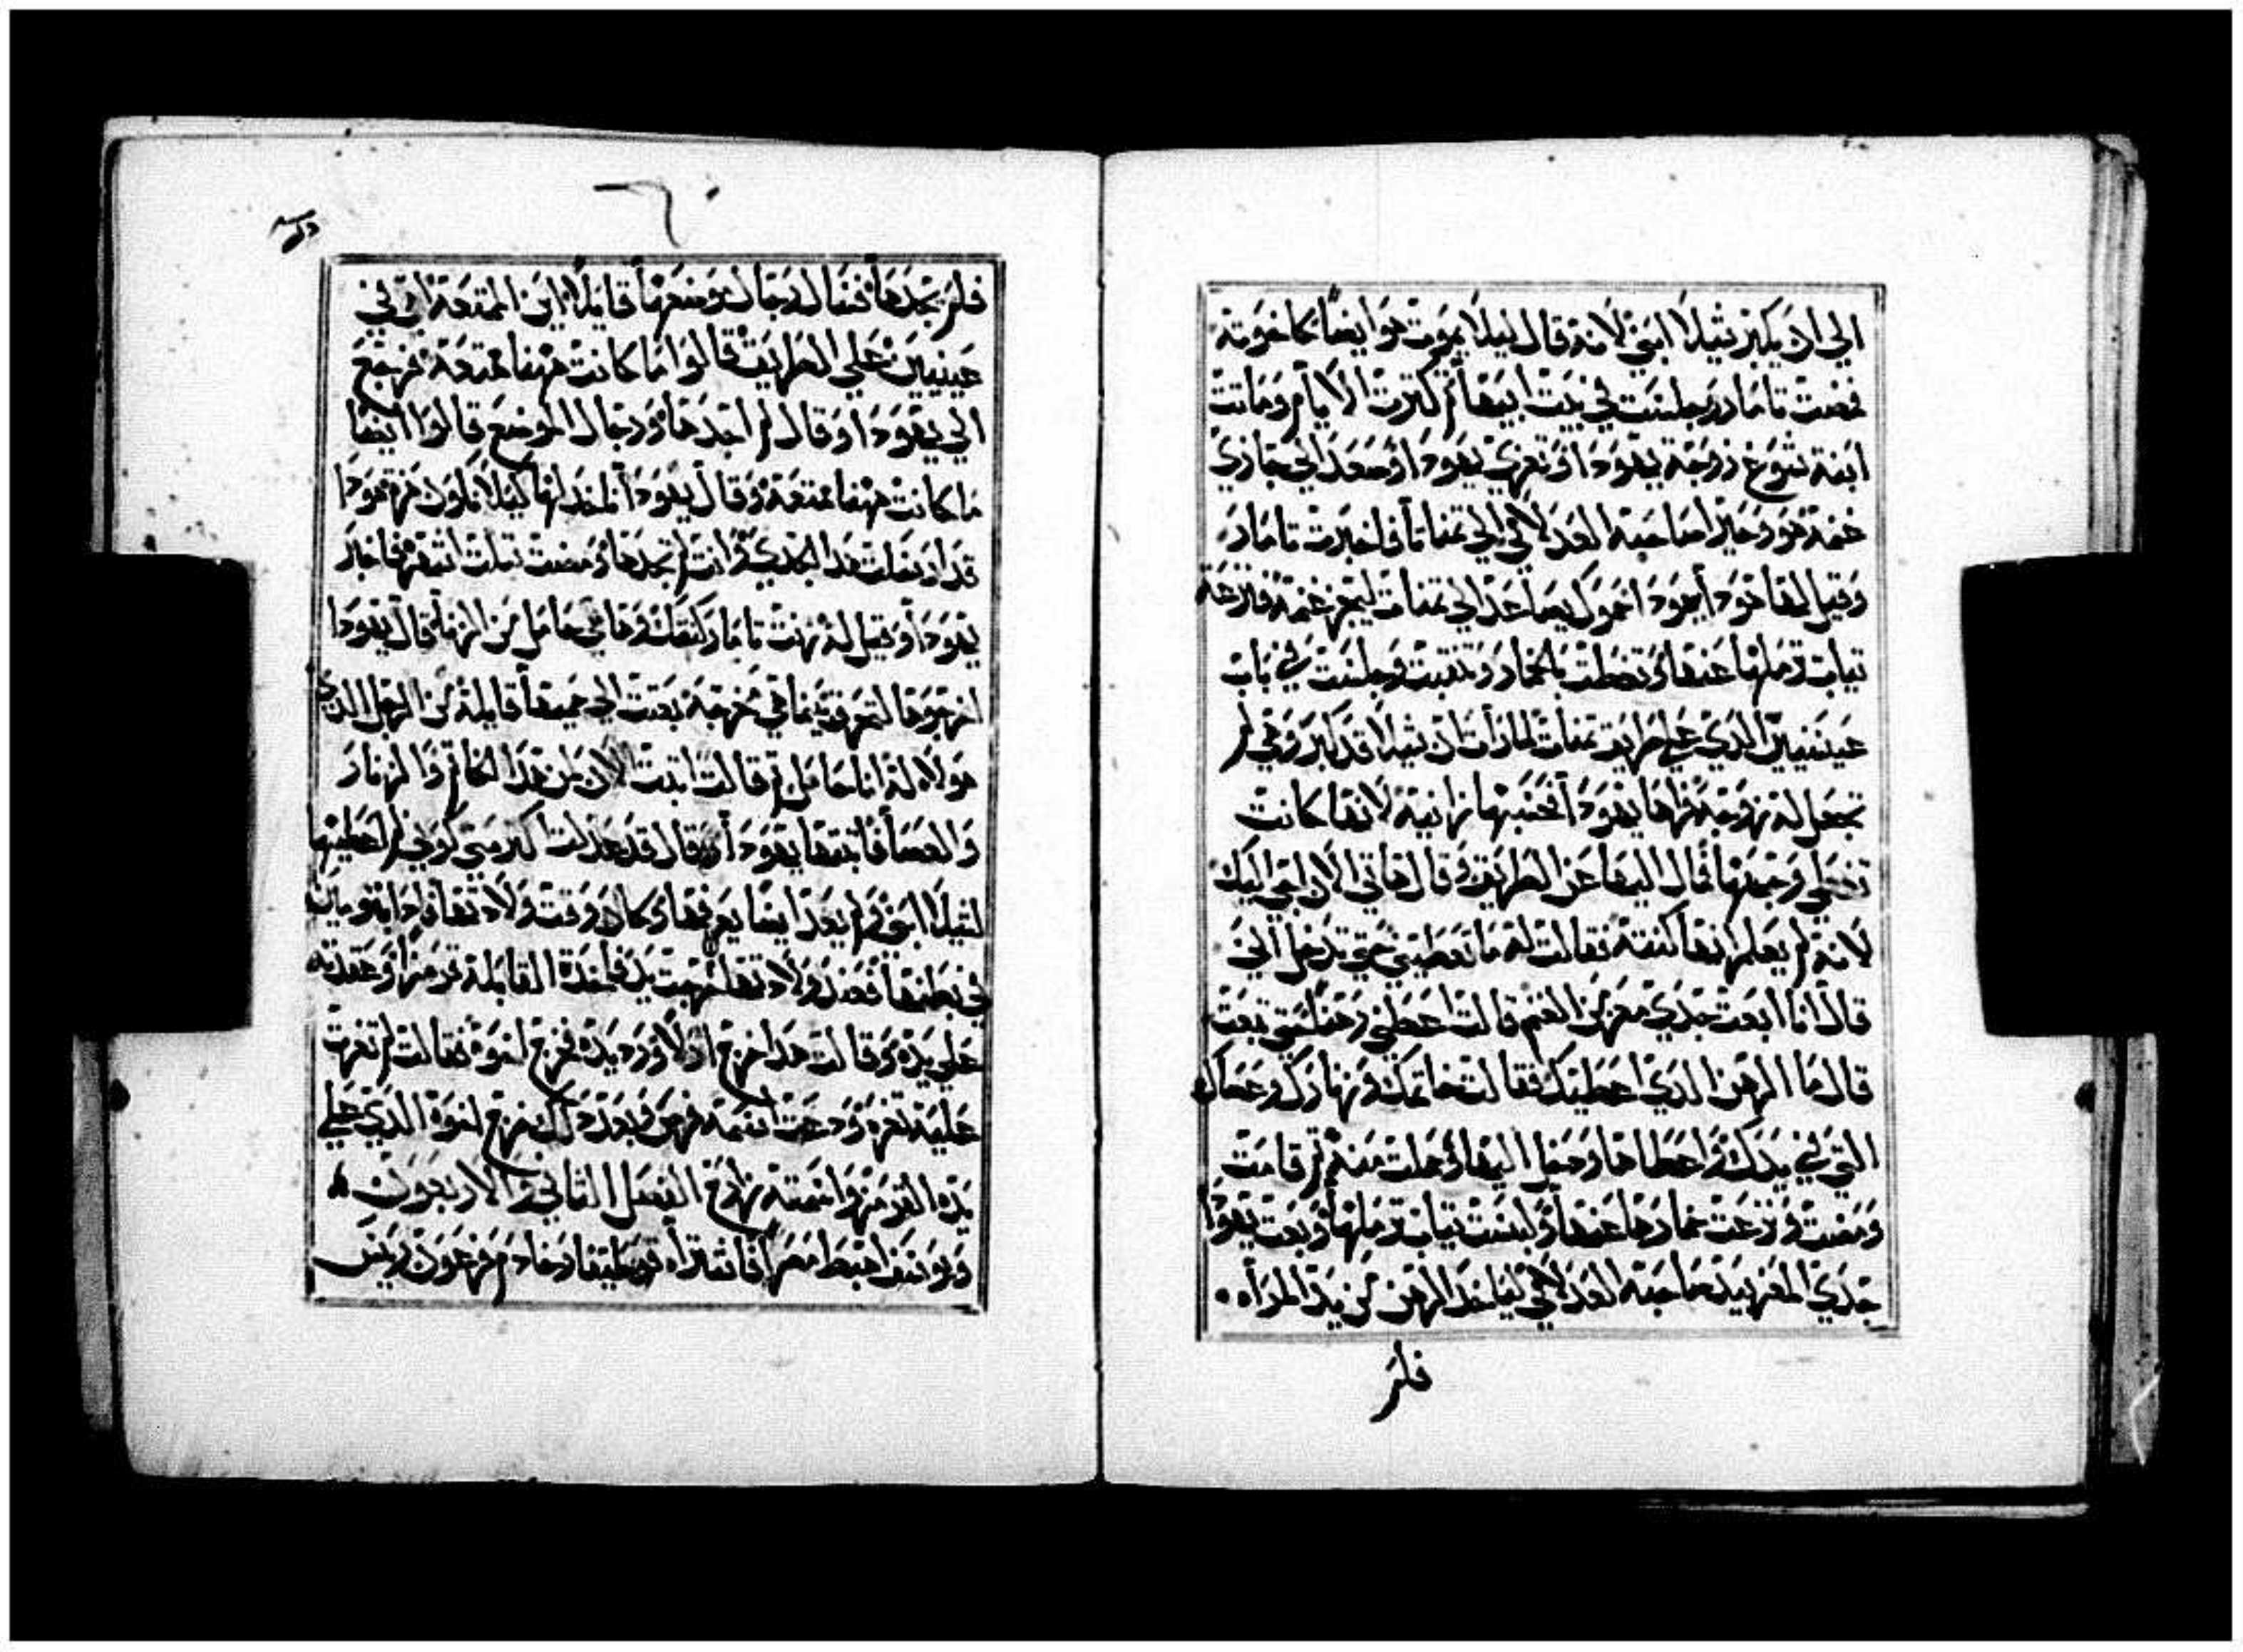 الي ان يكبر شيلا ابني لانه قال ليلا يموت هو ايضا كاخوته
فمضت تامار وجلست في بيت ابيها ثم كترت الايام وماتت
ابنة شوع زوجة يهودا وتعزي يهودا وصعد الي جازي
غنمه هو وحيرا صاحبه العدلامي الي تمنات فاخبرت تامار
وقيل لها هودا يهودا حموك صاعد الي تمنات ليجز غنمه فنزعت
تياب ترملها عنها وتغطت بالخمار وتنقبت وجلست في باب
عينيين الدي علي طريق تمنات لما رات ان شيلا قد كبر وهي لم
تجعل له زوجة فراها يهودا فحسبها زانية لانها كانت
تغطي وجهها فمال اليها عن الطريق وقال هاتي الان اجي اليك
لانه لم يعلم انها كنته فقالت له ما تعطيني حتي تدخل الي
قال انا ابعت جدي معز من الغنم قالت اعطني رهنا حتي تبعت
قال ما الرهن الدي اعطيك فقالت خاتمك وزنارك وعصاك
التي في يدك واعطاها ودخل اليها وحملت منه ثم قامت
ومضت ونزعت خمارها عنها ولبست تياب ترملها وبعت يهودا
جدي المعز بيد صاحبه العدلامي لياخد الرهن من يد المراه
فلم
٦٠
فلم يجدها فسال رجال موضعها قايلا اين الممتعة التي في
عينيين علي الطريق قالوا ما كانت ههنا ممتعة فرجع
الي يهودا وقال لم اجدها ورجال الموضع قالوا ايضا
ما كانت ههنا ممتعة وقال يهودا لتاخد لها ليلا نكون هزو هودا
قد ارسلت هدا الجدي وانت لم تجدها ومضت تلت اشهر فاخبر
يهودا وقيل له زنت تامار كنتك وها هي حامل من الزنا قال يهودا
اخرجوها لتحرق فيما هي مخرجة بعتت الي حميها قايلة من الرجل الدي
هولاء له انا حامل ثم قالت اتبت الان لمن هدا الخاتم والزنار
والعصا فاتبتها يهودا وقال قد عدلت اكتر مني كوني لم اعطيها
لشيلا ابني ولم يعد ايضا يعرفها وكان وقت ولادتها وادا بتوميان
في بطنها فعند ولادتها اخرجت يد فاخدة القابلة قرمزا وعقدته
علي يده وقالت هدا خرج اولا ورد يده فخرج اخوه فقالت لم تغزت
عليه تغره ودعت اسمه فرص وبعد دلك خرج اخوه الدي علي
يده القرمز واسمته زارح الفصل التاني والاربعون
ويوسف اهبط مصر فاشتراه فوطيفار خادم فرعون رييس